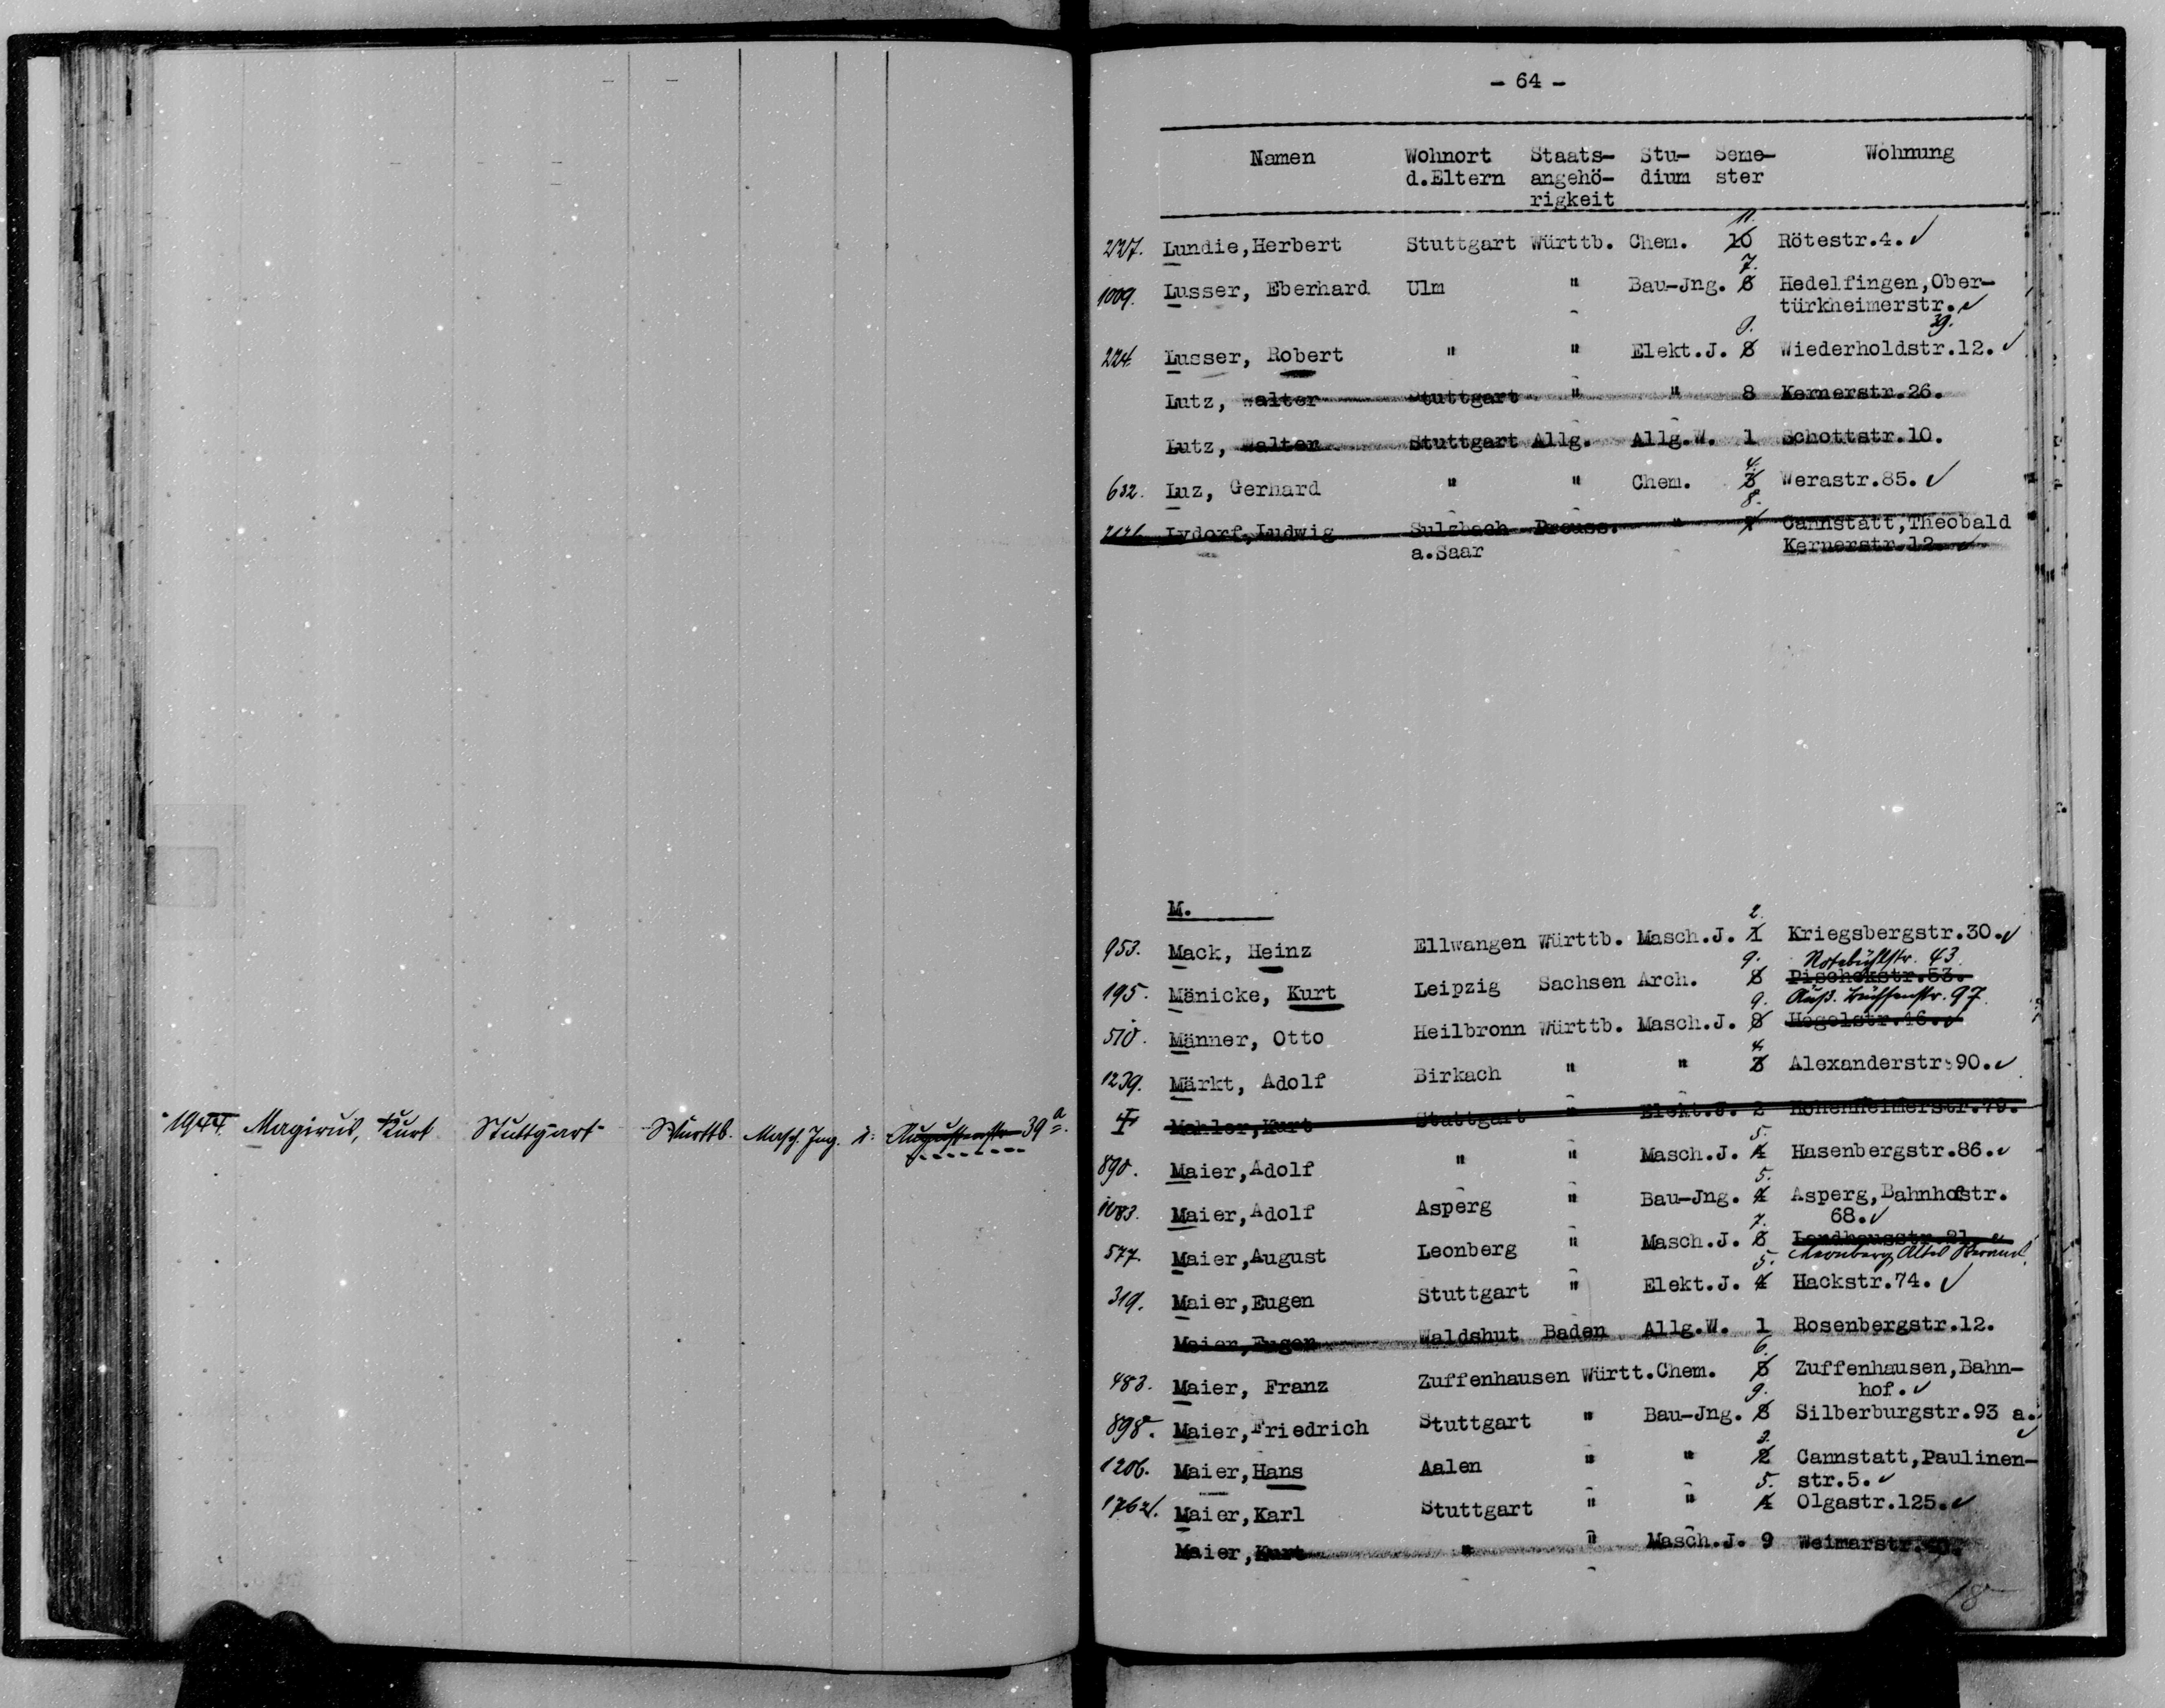 1944. Magirus, Kurt Stuttgart Württb. Masch. Ing. Augustenstr 39a.
- 64 -
Namen Wohnort Staats- Stu- Seme- Wohnung
d.Eltern angehö- dium ster
rigkeit
11.
227. Lundie,Herbert Stuttgart Württb. Chem. 10 Rötestr.4.
7.
1009. Lusser, Eberhard Ulm " Bau-Jng. 6 Hedelfingen,Ober-
türkheimerstr.
9. 39.
224. Lusser, Robert " " Elekt.J. 8 Wiederholdstr.12.
Lutz, Walter Stuttgart " " 8 Kernerstr.26.
Lutz, Walter Stuttgart Allg. Allg.W. 1 Schottstr.10.
4.
632. Luz, Gerhard " " Chem. 3 Werastr.85.
8.
Lydorf,Ludwig Sulzbach Preuss. " 7 Cannstatt,Theobald
a.Saar Kernerstr.12.
M.
2.
953. Mack, Heinz Ellwangen Württb. Masch.J. 1 Kriegsbergstr.30.
9. 43
195. Mänicke, Kurt Leipzig Sachsen Arch. 8 Pischekstr.53.
9. Äuß. Büchsenstr. 97
510. Männer, Otto Heilbronn Württb. Masch.J. 8 Hegelstr.46.
4.
1239. Märkt, Adolf Birkach " " 3 Alexanderstr.90.
Mahler,Kurt Stuttgart " Elekt.J. 2 Hohenheimerstr.79.
5.
890. Maier,Adolf " " Masch.J. 4 Hasenbergstr.86.
5.
1083. Maier,Adolf Asperg " Bau-Jng. 4 Asperg,Bahnhofstr.
68.
7.
577. Maier,August Leonberg " Masch.J. 6 Landhausstr.21.
5. Leonberg Altes
319. Maier,Eugen Stuttgart " Elekt.J. 4 Hackstr.74.
Maier,Eugen Waldshut Baden Allg.W. 1 Rosenbergstr.12.
6.
483. Maier, Franz Zuffenhausen Württ.Chem. 5 Zuffenhausen,Bahn-
hof.
9.
898. Maier,Friedrich Stuttgart " Bau-Jng. 8 Silberburgstr.93 a.
3.
1206. Maier,Hans Aalen " " 2 Cannstatt,Paulinen-
str.5.
5.
1762. Maier,Karl Stuttgart " " 4 Olgastr.125.
Maier,Kurt " " Masch.J. 9 Weimarstr.
18